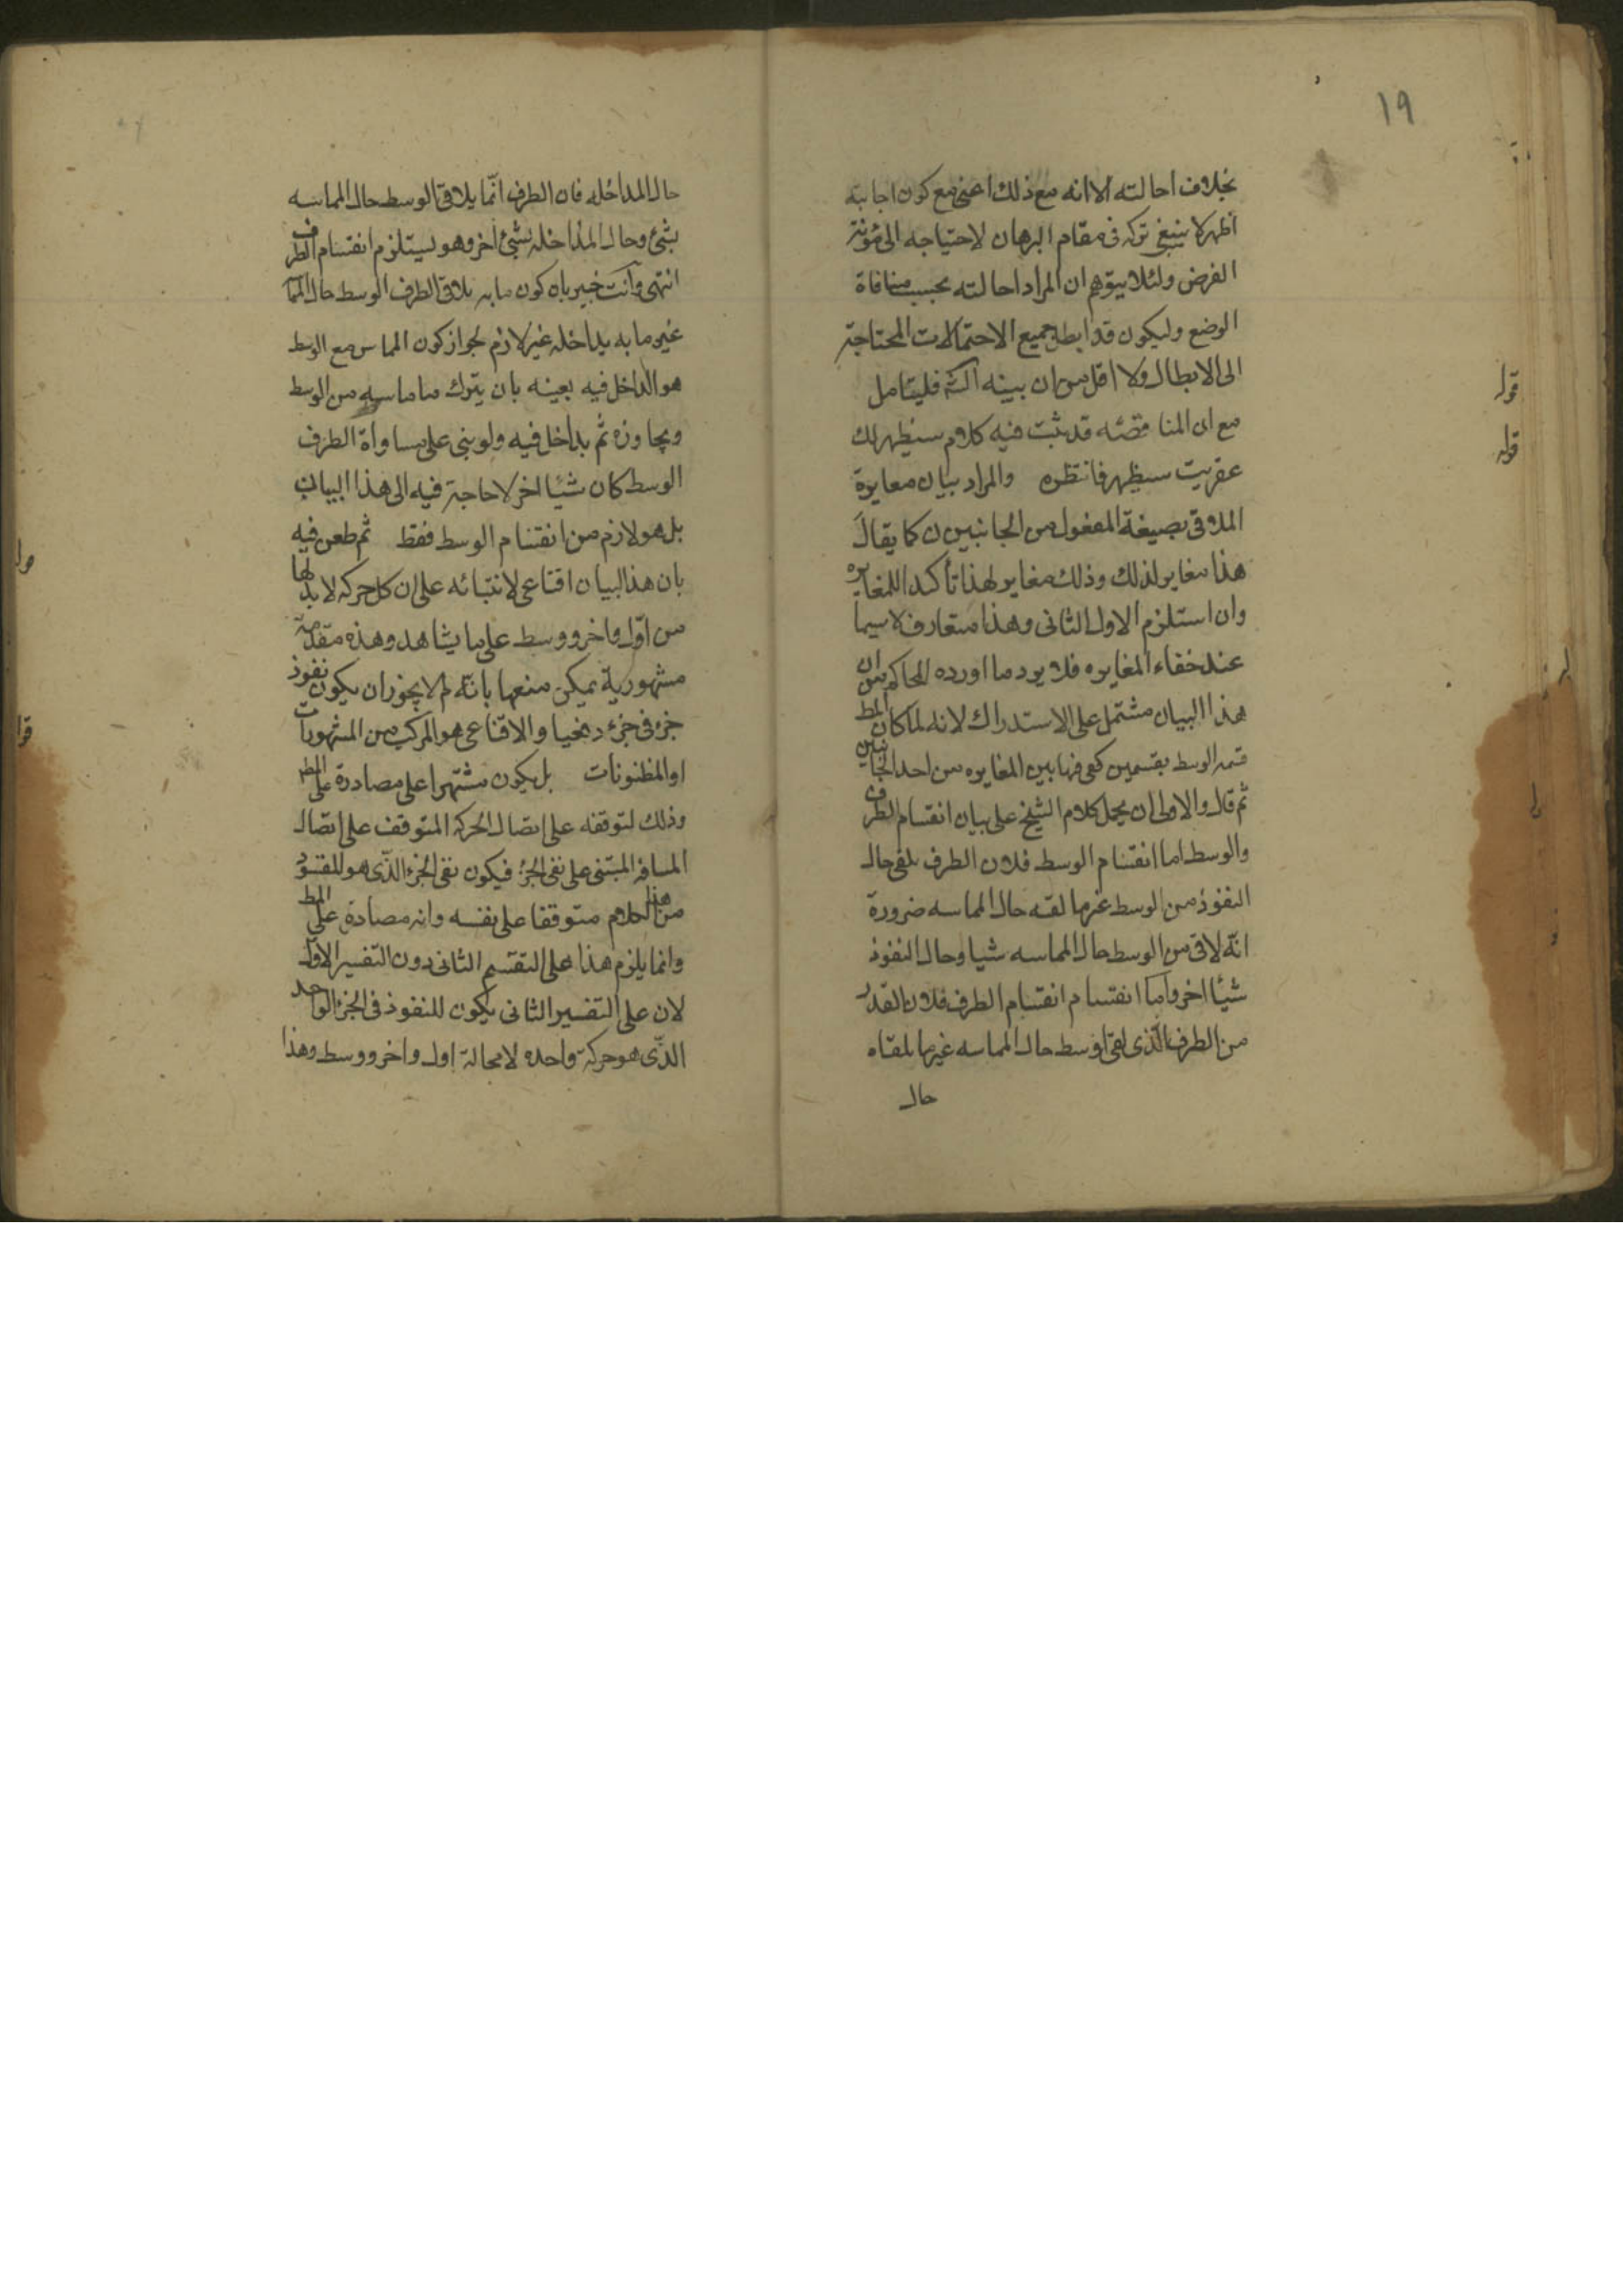 ١٩
بخلاف احالته الا انه مع ذلك اعنى مع كون اجابته
اظهر لا ينبغى تركه فى مقام البرهان لاحتياجه الى مؤنة
الفرض ولئلا يتوهم ان المراد احالته بحسب منافاة
الوضع وليكون قد ابطل جميع الاحتمالات المحتاجة
الى الابطال ولا اقل من ان بينه فليتامل
قوله
مع ان المناقضه قد ثبت فيه كلام سيظهر لك
قوله
عقريب سيظهر فانتظره والمراد بيان مغايرة
الملاقى بصيغة المفعول من الجانبين كما يقال
هذا مغاير لذلك وذلك مغاير لهذا تأكيدا للمغايره
وان استلزم الاول الثانى وهذا متعارف لا سيما
عند خفاء المغايره فلا يرد ما اورده المحاكم من ان
هذا البيان مشتمل على الاستدراك لانه لما كان المط
قسمه الوسط بقسمين كفى فيها بين المغايره من احد الجانبين
ثم قال والاولى ان يحمل كلام الشيخ على بيان انقسام الطرف
والوسط اما انقسام الوسط فلان الطرف يلقى حال
النفوذ من الوسط غير ما لقيه حال المماسه ضرورة
انّه لاقى من الوسط حال المماسه شيا وحال النفوذ
شيئا اخر واما انقسام الطرف فلان القدر
من الطرف الّذى لقى الوسط حال المماسه غير ما يلقاه
حال
حال المداخله فان الطرف انّما يلاقى الوسط حال المماسه
بشئ وحال المداخله بشئ اخر وهو يستلزم انقسام الطرف
انتهى وانت خبير بان كون ما به يلاقى الطرف الوسط حال
غير ما به يداخله غير لازم لجواز كون المماس مع الوسط
هو الداخل فيه بعينه بان يترك ما ماسه من الوسط
ويجاوزه ثم يداخل فيه ولو بنى على مساواة الطرف
الوسط كان شيئا اخر لا حاجة فيه الى هذا البيان
بل هو لازم من انقسام الوسط فقط ثم طعن فيه
بان هذا البيان اقناعى لابتنائه على ان كل حركه لا بد لها
من اوّل واخر ووسط على ما يشاهد وهذه مقدمة
مشهورية يمكن منعها بانّه لم لا يجوز ان يكون نفوذ
جزء فى جزء والاقناعى هو المركب من المشهورات
او المظنونات بل يكون مشتهرا على مصادرة على المط
وذلك لتوقفه على اتصال الحركه المتوقف على اتصال
المسافه المبتنى على نفى الجزء فيكون نفى الجزء الّذى هو المقصود
من هذا الكلام متوقفا على نفسه وانه مصادرة على المط
وانما يلزم هذا على التقسيم الثانى دون التفسير الاوّل
لان على التفسير الثانى يكون للنفوذ فى الجزء الواحد
الذّى هو حركة واحده لا محالة اول واخر ووسط وهذا